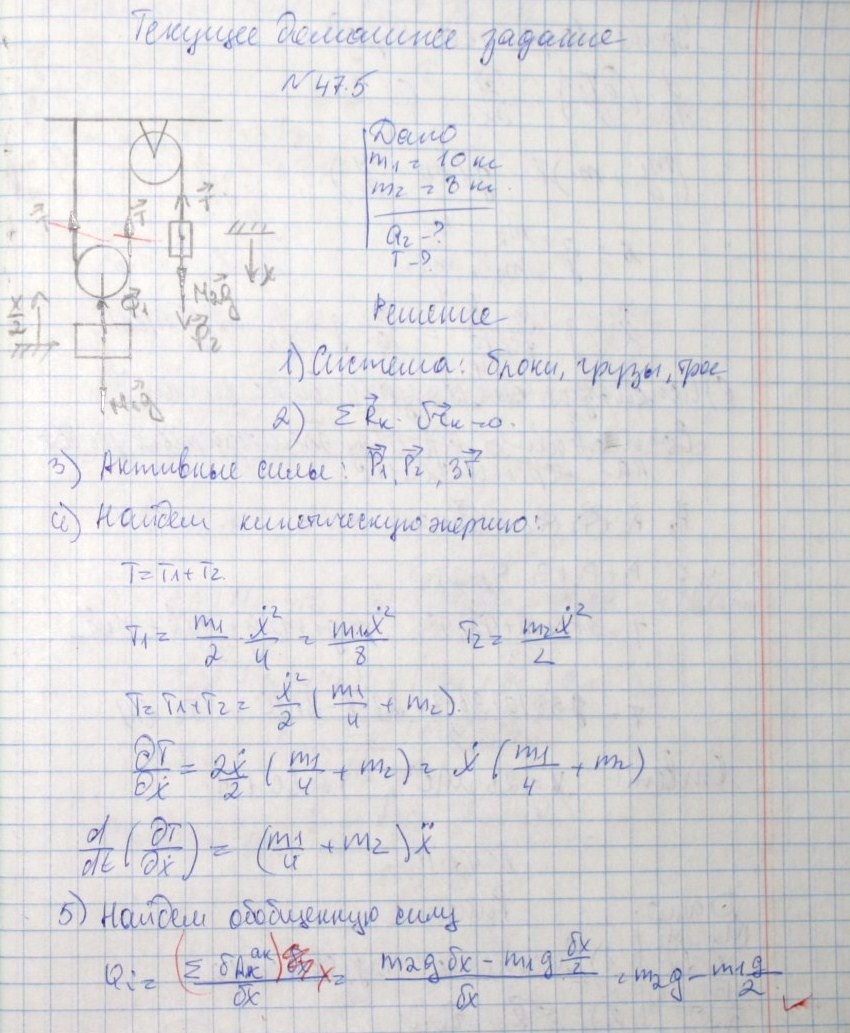 Текущее домашнее задание
№47.5
Дано
m₁ = 10 кг
m₂ = 8 кг
a₂ - ?
T - ?
T⃗ T⃗ T⃗
x
x/2
m₂g⃗
P⃗₂
m₁g⃗
Решение
1) Система: блоки, грузы, трос
2) Σ R⃗ₖ · δr⃗ₖ = 0.
3) Активные силы: P⃗₁, P⃗₂, 3T⃗
4) Найдем кинетическую энергию:
T = T₁ + T₂
T₁ = m₁/2 · ẋ²/4 = m₁ẋ²/8 T₂ = m₂ẋ²/2
T = T₁ + T₂ = ẋ²/2 (m₁/4 + m₂).
∂T/∂ẋ = 2ẋ/2 (m₁/4 + m₂) = ẋ (m₁/4 + m₂)
d/dt (∂T/∂ẋ) = (m₁/4 + m₂) ẍ
5) Найдем обобщенную силу
Qᵢ = (Σ δAₖᵃᵏ)x / δx = (m₂g·δx - m₁g δx/2) / δx = m₂g - m₁g/2